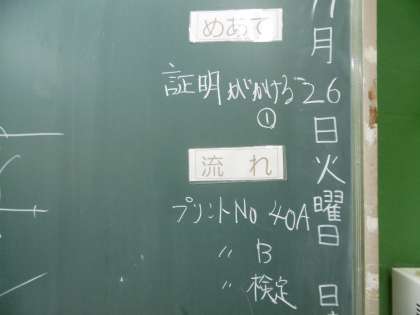 11月26日火曜日
めあて
証明がかける
①
流れ
プリントNo 40A
〃 B
〃 検定